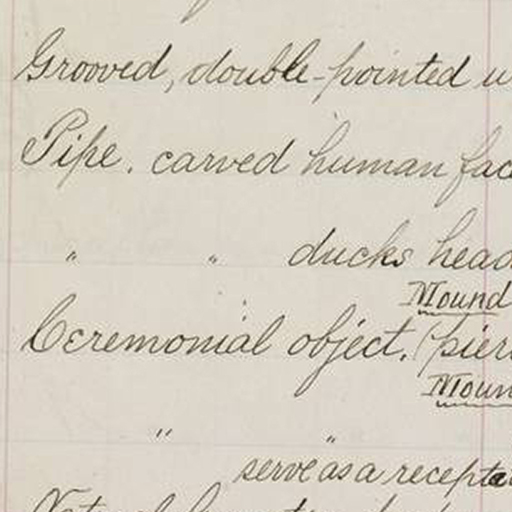 Grooved, double-pointed
Pipe. carved human fac
" " ducks head
Mound
Ceremonial object. (pier
Moun
" "
serve as a recepta